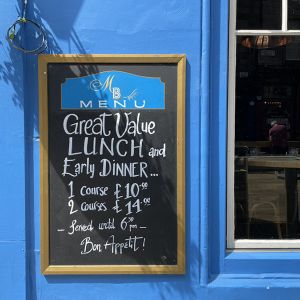 MB
MENU
Great Value
LUNCH and
Early DINNER...
1 course £10.00
2 courses £14.00
- Served until 6.30pm -
Bon Appetit!